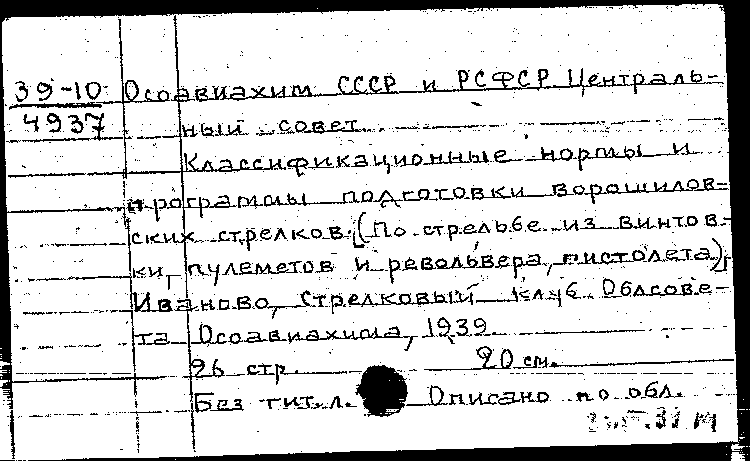 39-10 Осоавиахим СССР и РСФСР. Централь-
4937 ный совет.
Классификационные нормы и
программы подготовки ворошилов-
ских стрелков. (По стрельбе из винтов-
ки, пулеметов и револьвера, пистолета).
Иваново, Стрелковый клуб Облсове-
та Осоавиахима, 1939.
26 стр. 20 см.
Без тит. л. Описано по обл.